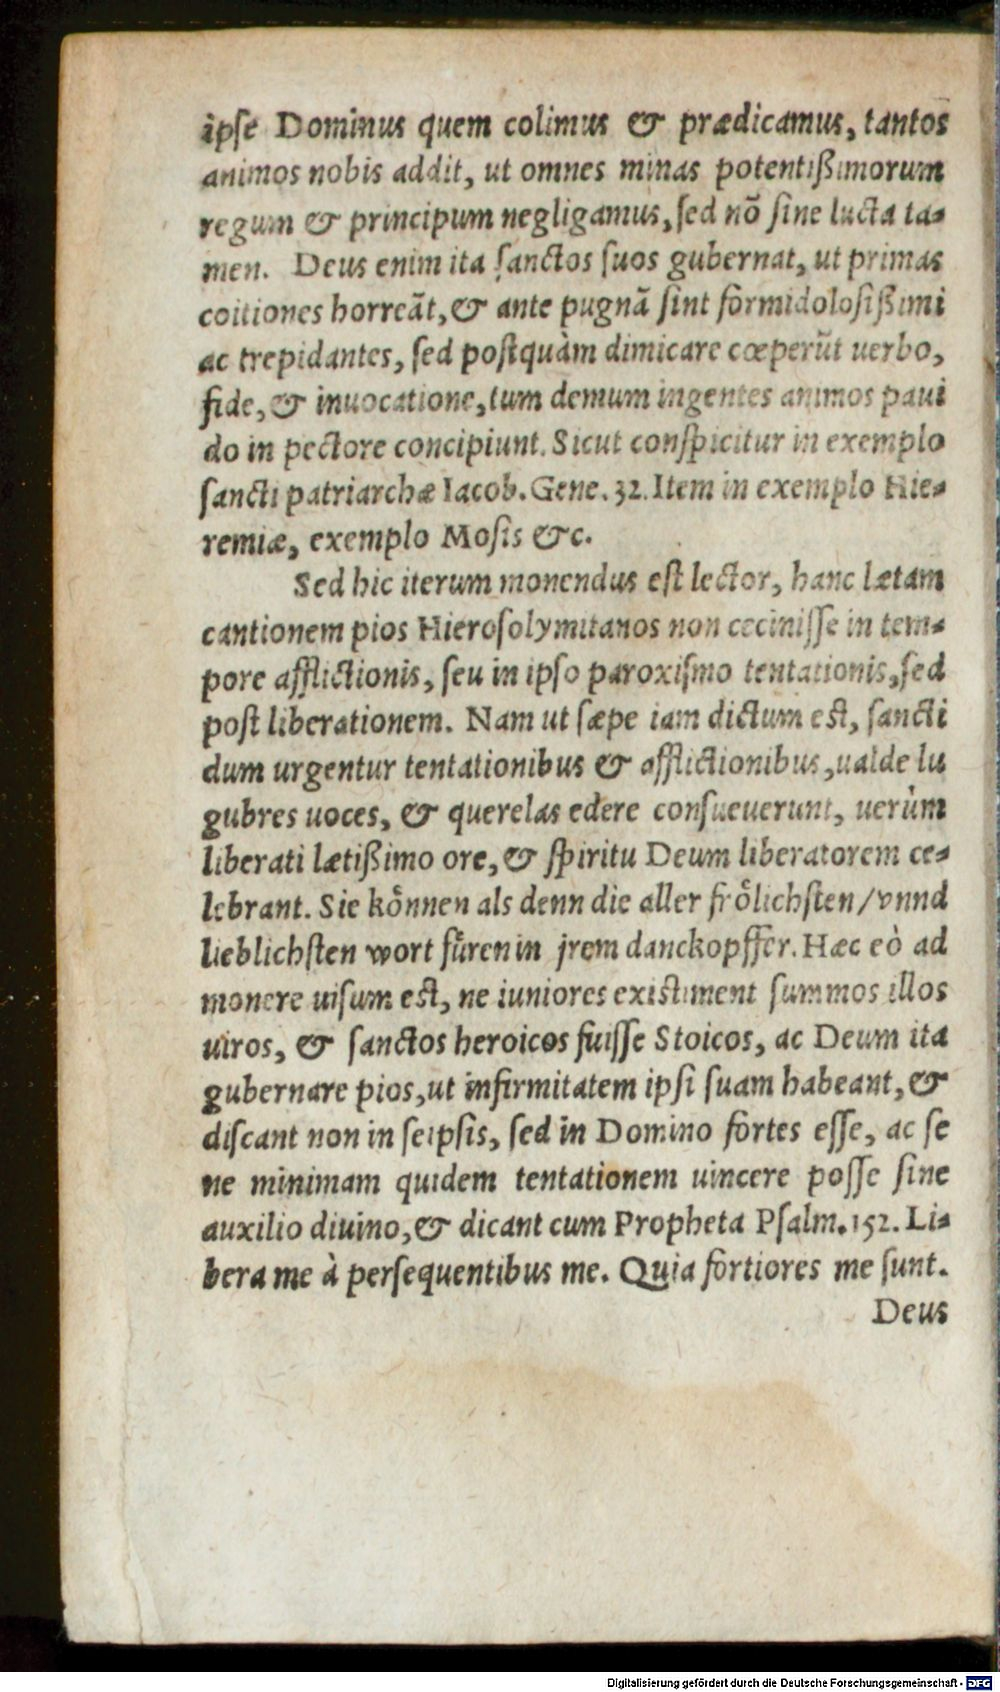 ipſe Dominus quem colimus & prædicamus, tantos
animos nobis addit, ut omnes minas potentißimorum
regum & principum negligamus, ſed nõ ſine lucta ta-
men. Deus enim ita ſanctos ſuos gubernat, ut primas
coitiones horreãt, & ante pugnã ſint formidoloſißimi
ac trepidantes, ſed poſtquàm dimicare cœperũt uerbo,
fide, & inuocatione, tum demum ingentes animos paui
do in pectore concipiunt. Sicut conſpicitur in exemplo
ſancti patriarchæ Iacob. Gene. 32. Item in exemplo Hie-
remiæ, exemplo Moſis &c.
Sed hic iterum monendus eſt lector, hanc lætam
cantionem pios Hieroſolymitanos non ceciniſſe in tem-
pore afflictionis, ſeu in ipſo paroxiſmo tentationis, ſed
poſt liberationem. Nam ut ſæpe iam dictum eſt, ſancti
dum urgentur tentationibus & afflictionibus, ualde lu
gubres uoces, & querelas edere conſueuerunt, uerùm
liberati lætißimo ore, & ſpiritu Deum liberatorem ce-
lebrant. Sie koͤnnen als denn die aller froͤlichſten/vnnd
lieblichſten wort fuͤren in jrem danckopffer. Hæc eò ad
monere uiſum eſt, ne iuniores existiment ſummos illos
uiros, & ſanctos heroicos fuiſſe Stoicos, ac Deum ita
gubernare pios, ut infirmitatem ipſi ſuam habeant, &
diſcant non in ſeipſis, ſed in Domino fortes eſſe, ac ſe
ne minimam quidem tentationem uincere poſſe ſine
auxilio diuino, & dicant cum Propheta Pſalm. 152. Li-
bera me à perſequentibus me. Quia fortiores me ſunt.
Deus
Digitalisierung gefördert durch die Deutsche Forschungsgemeinschaft - DFG